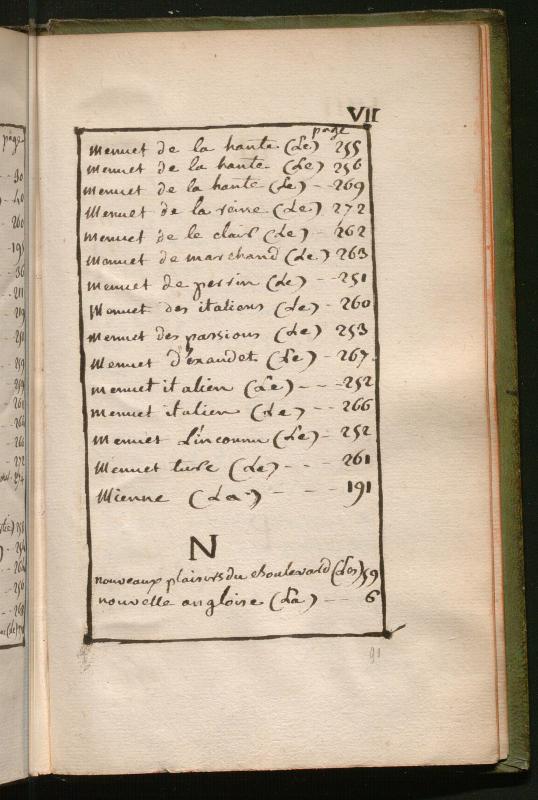 VII
page
menuet de la hante (Le) 255
menuet de la hante (Le) 256
menuet de la hante (Le) - 269
Menuet de la reine (Le) 272
menuet de le clair (Le) - 262
Menuet de marchand (Le) 263
menuet de perrin (Le) - 251
Menuet des italiens (Le) - 260
menuet des passions (Le) 253
Menuet d'exaudet (Le) - 267
menuet italien (Le) - - - 252
menuet italien (Le) - - 266
menuet L'inconnu (Le) - 252
Menuet turc (Le) - - - 261
Mienne (La) - - - - 191
N
nouveaux plaisirs du Boulevard (Les) 59
nouvelle angloise (La) - - 6
91
page
- - 30
) - 40
- 260
- 191
- - 36
- - 211
- 219
- 250
- 259
- 254
- 261
- 266
- 272
- 254
- 256
- 268